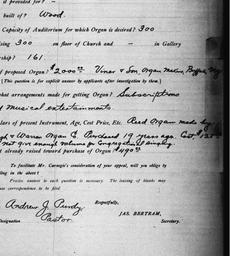 it provided for? -
built of? Wood.
Capacity of Auditorium for which Organ is desired? 300
ising 300 on floor of Church and - in Gallery
rship? 161.
f proposed Organ? $2000.00 Viner & Son, Organ
(This question is for explicit answer by applicants after investigation by them.)
hat arrangements made for getting Organ? Subscriptions
d Musical entertainments
lars of present Instrument, Age, Cost Price, Etc. Reed Organ made by
& Warren Organ Co. Purchased 19 years ago. Cost
not give enough volume for Congregational singing.
t already raised toward purchase of Organ $490.00
To facilitate Mr. Carnegie's consideration of your appeal, will you oblige by
ling in the above?
Precise answer to each question is necessary. The issuing of blanks may
ean correspondence to be filed.
Respectfully,
Andrew J. Purdy
JAS. BERTRAM,
Designation Pastor Secretary.